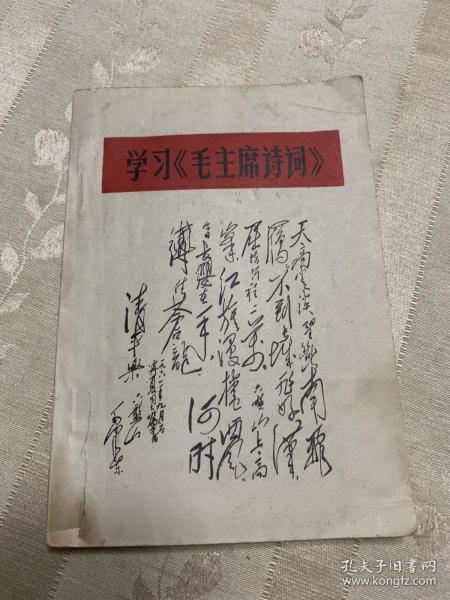 学习《毛主席诗词》
天高云淡 望断南飛
雁 不到长城非好漢,
屈指行程二万。六盘山上高
峯 红旗漫捲西风。
今日长缨在手,何时
缚住苍龍
清平乐
六盘山
一九六一年九月
毛泽东
孔夫子旧书网
www.kongfz.com